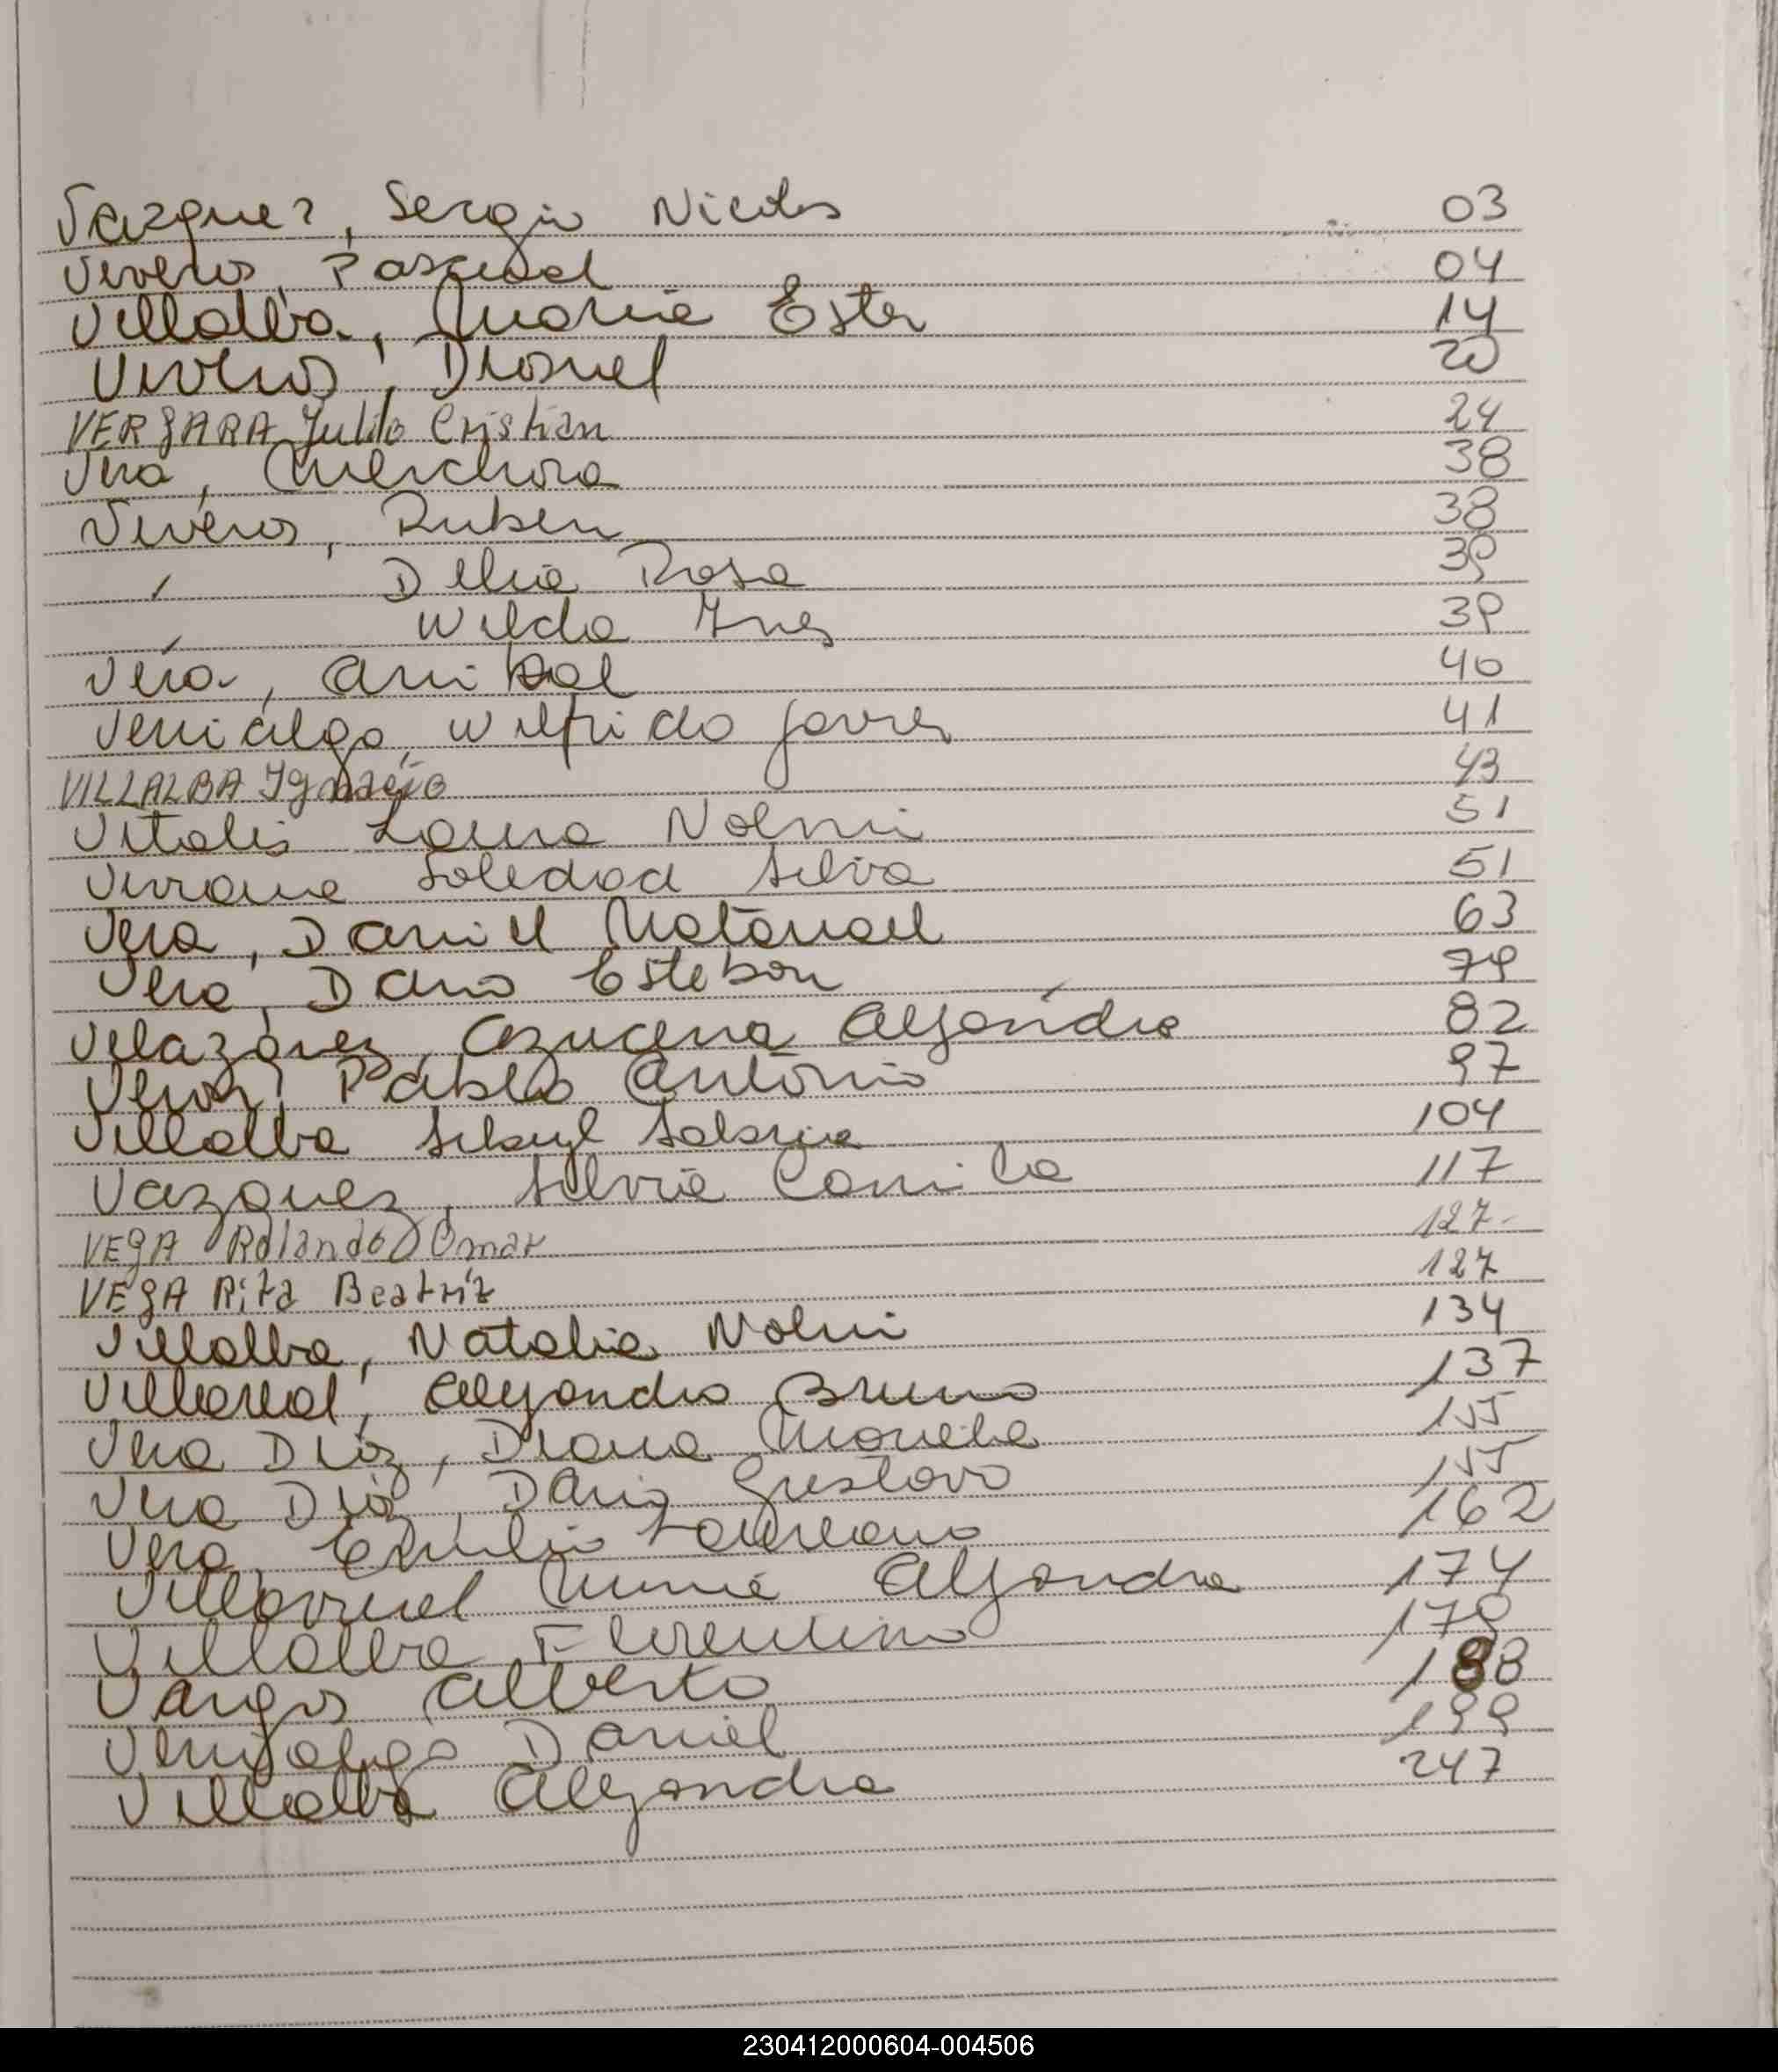 Vazquez, Sergio Nicolas 03
Viveros, Pascual 04
Villalba, Maria Ester 14
Viveros, Dionel 20
VERGARA Julio Cristian 24
Vera, Melchora 38
Viveros, Ruben 38
" Delia Rosa 39
" Wilda Ines 39
Vera, Anibal 40
Venialgo, Wilfrido Javier 41
VILLALBA Ignacio 43
Vitalis Laura Noemi 51
Soledad Silva 51
Vera, Daniel Natanael 63
Vera, Dario Esteban 79
Velazquez, Azucena Alejandra 82
Pablo Antonio 97
Villalba Sabrina 104
Vazquez, Silvia Camila 117
VEGA Rolando Omar 127-
VEGA Rita Beatriz 127
Villalba, Natalia Noemi 134
Villareal, Alejandro Bruno 137
Vera Diaz, Diana Mariela 155
Vera Diaz, Dario Gustavo 155
Vera, Emilio Laureano 162
Villarruel Alejandra 174
Villalba Florentino 179
Vargas Alberto 188
Venialgo Daniel 199
Villalba Alejandra 247
230412000604-004506